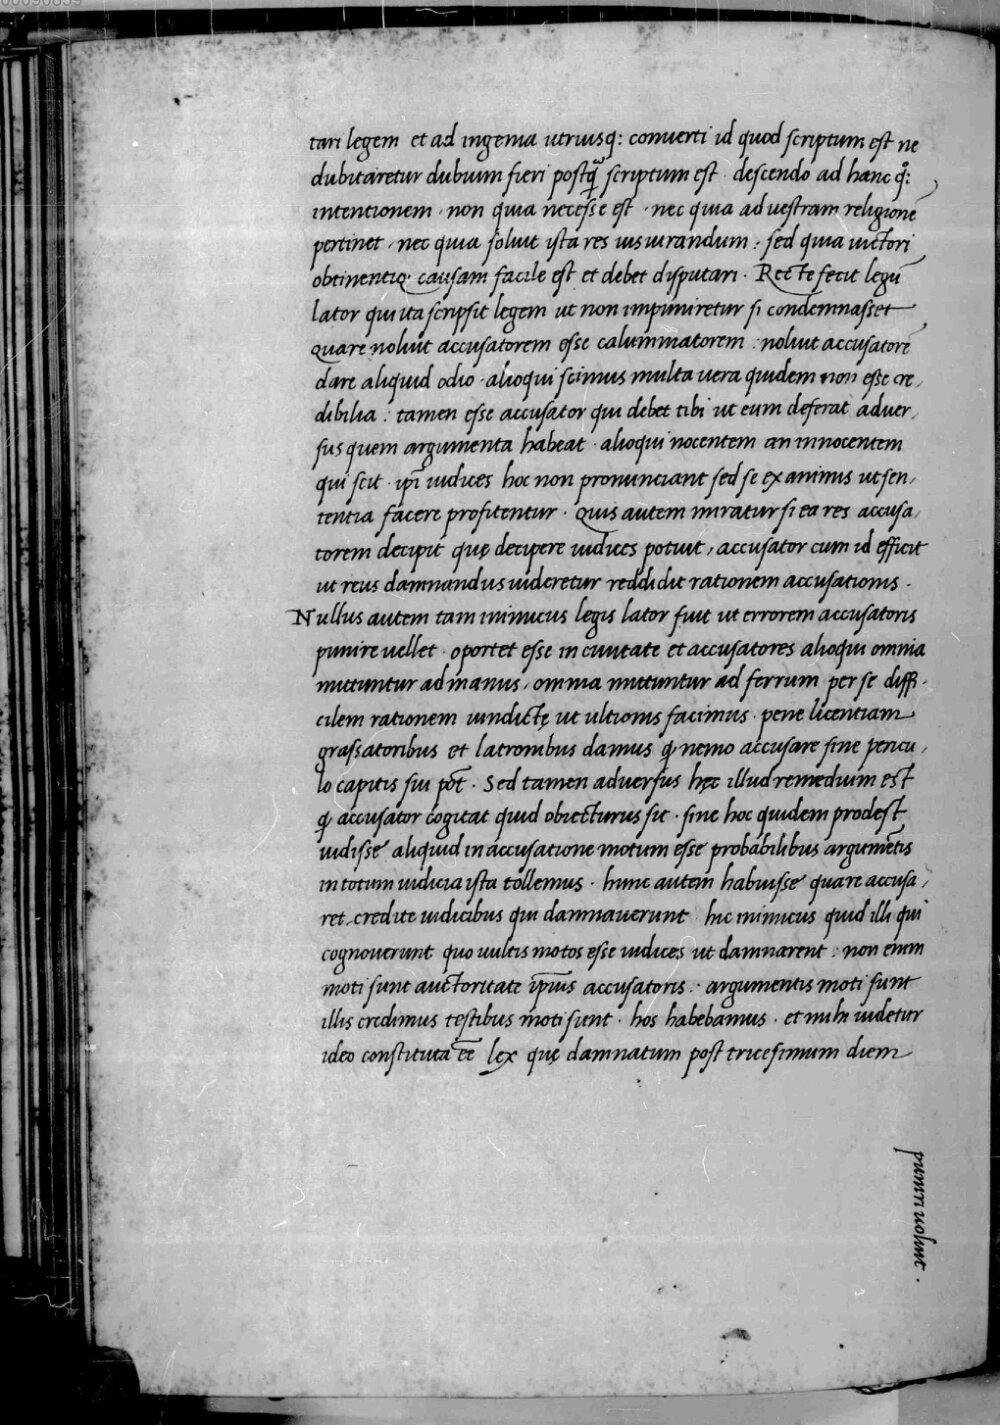 tari legem et ad ingenia utriusq: converti id quod scriptum est ne
dubitaretur dubium fieri postq̃ scriptum est · descendo ad hanc q̊:
intentionem · non quia necesse est · nec quia ad vestram religionē
pertinet · nec quia soluit ista res iusiurandum : sed quia uictori
obtinentiq· causam facile est et debet disputari · Recte fecit legū
lator qui ita scripsit legem ut non impuniretur si condemnasset
quare noluit accusatorem esse calumniatorem : noluit accusatorē
dare aliquid odio · alioqui scimus multa uera quidem non esse cre,
dibilia : tamen esse accusator qui debet tibi ut eum deferat adver,
sus quem argumenta habeat · alioqui nocentem an innocentem
qui scit · ip̄i iudices hoc non pronunciant sed se ex animis ut sen,
tentia facere profitentur · Quis autem miratur si ea res accusa,
torem decipit quę decipere iudices potuit, accusator cum id efficit
ut reus damnandus uideretur reddidit rationem accusationis ·
Nullus autem tam inimicus legis lator fuit ut errorem accusatoris
punire uellet · oportet esse in ciuitate et accusatores alioqui omnia
mittuntur ad manus, omnia mittuntur ad ferrum per se diffi·
cilem rationem uindictę ut ultionis facimus · pene licentiam
grassatoribus et latronibus damus ꝙ nemo accusare sine pericu,
lo capitis sui pōt · Sed tamen adversus hęc illud remedium est
ꝙ accusator cogitat quid obiecturus sit · sine hoc quidem prodest
uidisse aliquid in accusatione motum esse probabilibus argumētis
in totum iudicia ista tollemus · hunc autem habuisse quare accusa,
ret credite iudicibus qui damnauerunt hic inimicus quid illi qui
cognouerunt quo uultis motos esse iudices ut damnarent : non enim
moti sunt auctoritate ip̄ius accusatoris · argumentis moti sunt
illis credimus testibus moti sunt · hos habebamus · et mihi uidetur
ideo constituta ēē lex quę damnatum post tricesimum diem
puniri uoluit ·